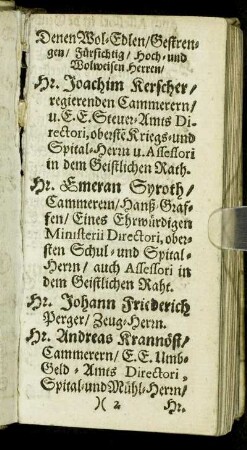 Denen Wol-Edlen/Gestren-
gen/ Fürsichtig/ Hoch- und
Wolweisen Herren/
Hr. Joachim Kerscher/
regierenden Cammerern/
u. E. E. Steuer-Amts Di-
rectori, oberste Kriegs- und
Spital-Herrn u. Assessori
in dem Geistlichen Rath.
Hr. Emeran Syroth/
Cammerern/ Hanß-Graf-
fen/ Eines Ehrwürdigen
Ministerii Directori, ober-
sten Schul- und Spital-
Herrn/ auch Assessori in
dem Geistlichen Raht.
Hr. Johann Friederich
Perger/ Zeug-Herrn.
Hr. Andreas Krannöst/
Cammerern/ E. E. Umb-
Geld-Amts Directori,
Spital-und Mühl-Herrn/
)( 2 Hr.